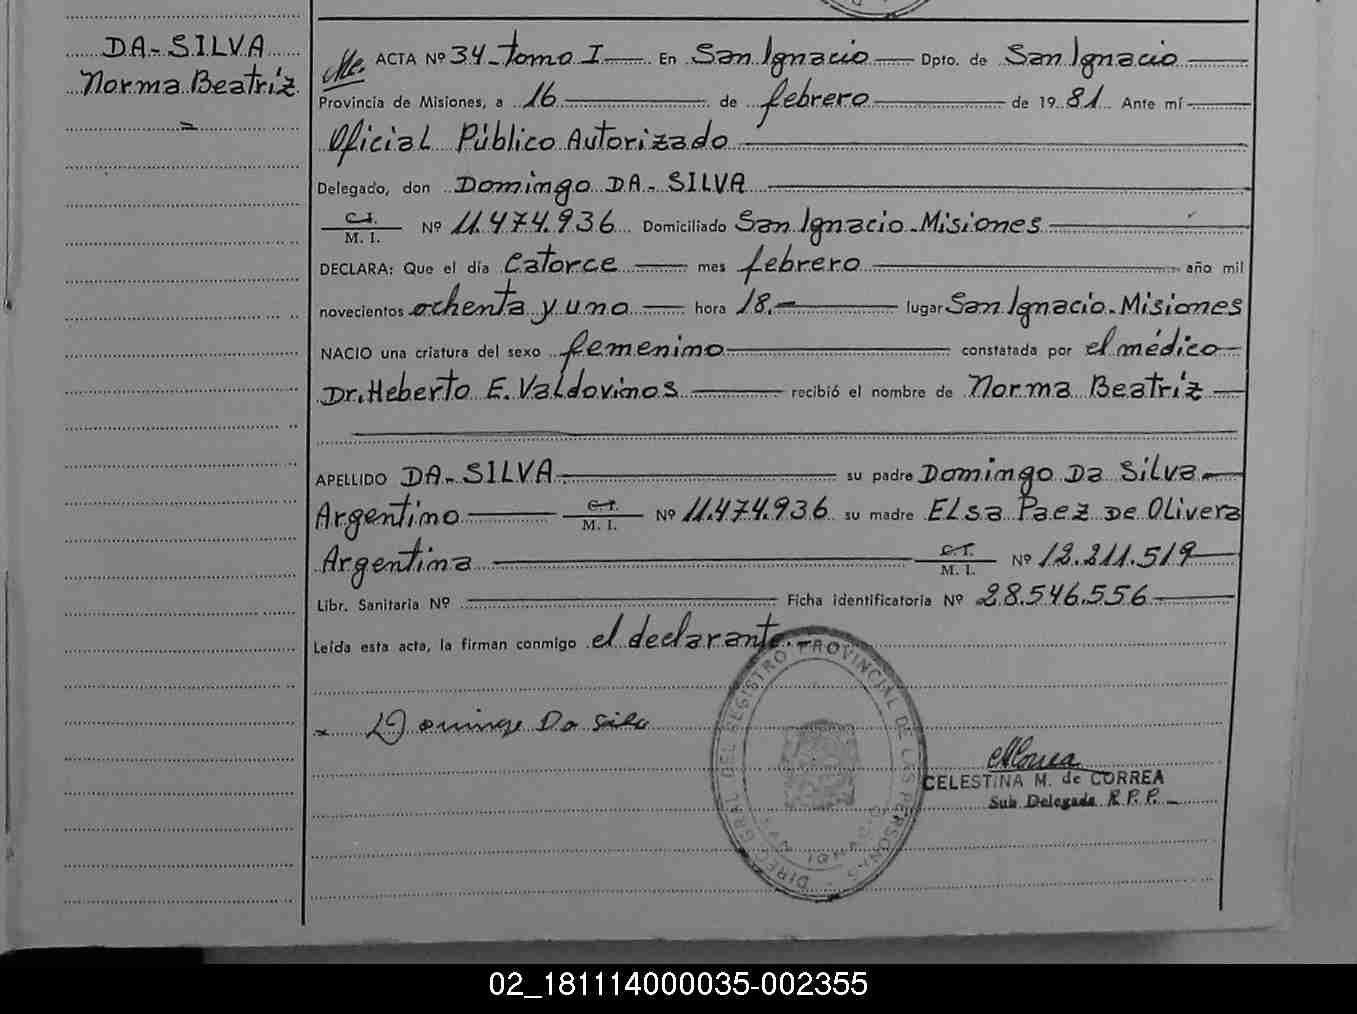 DA-SILVA
Norma Beatríz
ACTA Nº 34 - tomo I En San Ignacio Dpto. de San Ignacio
Provincia de Misiones, a 16 de febrero de 1981 Ante mí
Oficial Público Autorizado
Delegado, don Domingo DA-SILVA
C.I.
M. I. Nº 11.474.936 Domiciliado San Ignacio - Misiones
DECLARA: Que el día Catorce mes febrero año mil
novecientos ochenta y uno hora 18.- lugar San Ignacio - Misiones
NACIO una criatura del sexo femenino constatada por el médico
Dr. Heberto E. Valdovinos recibió el nombre de Norma Beatríz
APELLIDO DA-SILVA su padre Domingo Da Silva
Argentino C.I. M. I. Nº 11.474.936 su madre Elsa Paez de Olivera
Argentina C.I. M. I. Nº 12.211.519
Libr. Sanitaria Nº Ficha identificatoria Nº 28.546.556
Leída esta acta, la firman conmigo el declarante.-
Domingo Da Silva
CELESTINA M. de CORREA
Sub Delegada R.P.P.
DIREC. GRAL. DEL REGISTRO PROVINCIAL DE LAS PERSONAS
SAN IGNACIO
02_181114000035-002355